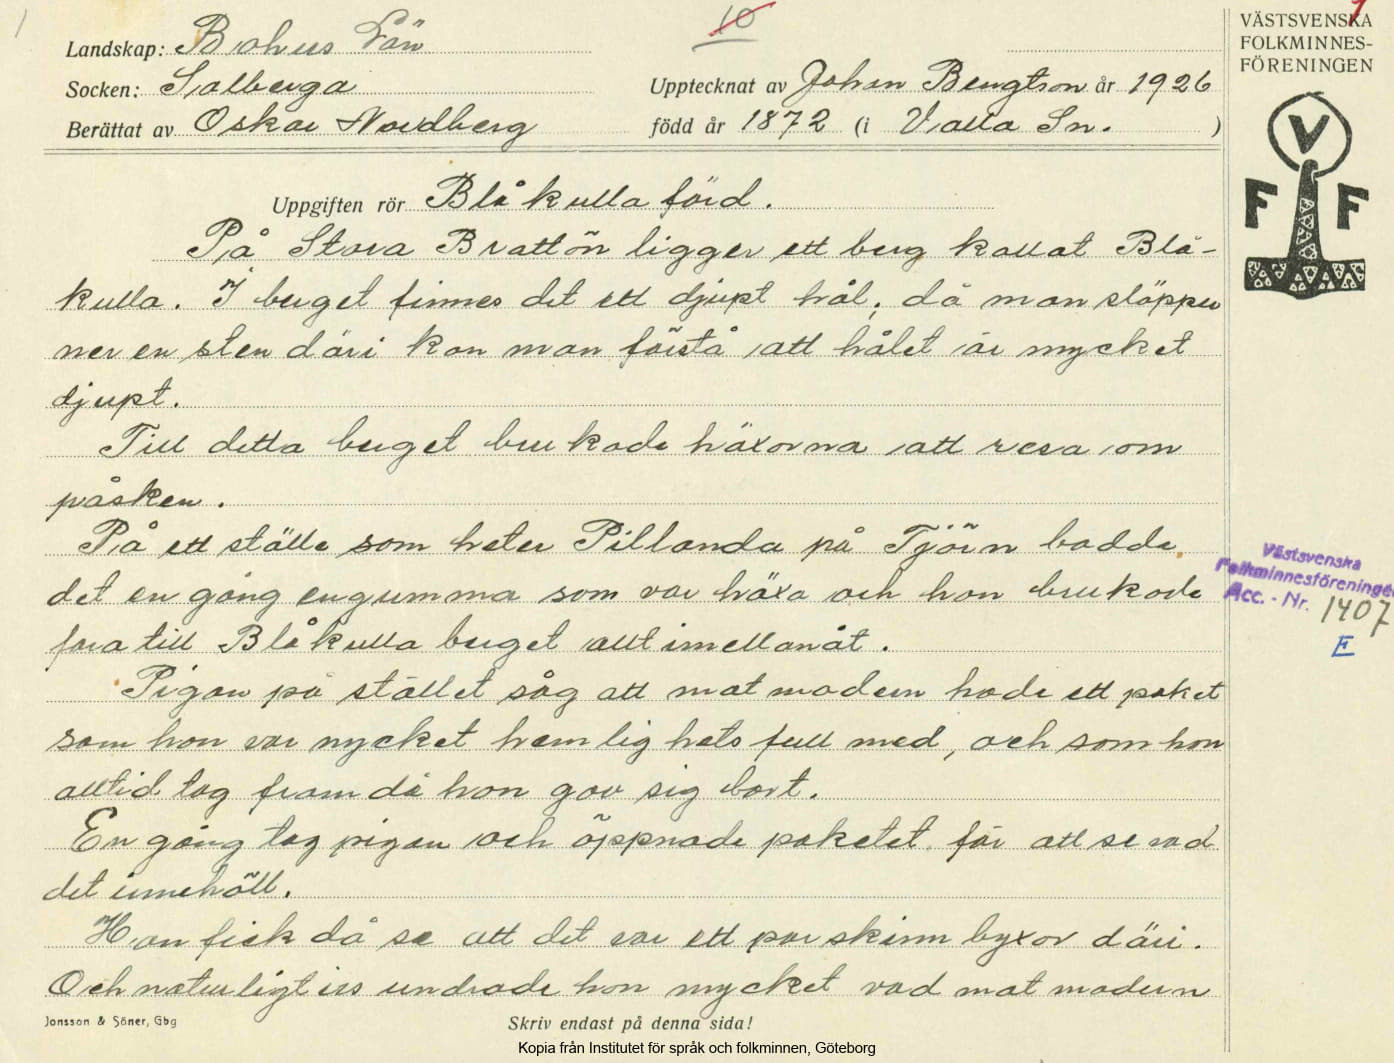 10
VÄSTSVENSKA
FOLKMINNES-
FÖRENINGEN
Landskap: Bohus Län
Socken: Solberga
Upptecknat av Johan Bengtson år 1926
Berättat av Oskar Nordberg
född år 1872 (i Valla Sn. )
V
F F
Uppgiften rör Blåkulla färd.
På Stora Brattön ligger ett berg kallat Blå-
kulla. I berget finnes det ett djupt hål, då man släpper
ner en sten däri kan man förstå att hålet är mycket
djupt.
Till detta berget brukade häxorna att resa om
påsken.
På ett ställe som heter Pillanda på Tjörn bodde
det en gång en gumma som var häxa och hon brukade
fara till Blåkulla berget allt imellanåt.
Pigan på stället såg att matmodern hade ett paket
som hon var mycket hemlighets full med, och som hon
alltid tog fram då hon gav sig bort.
En gång tog pigan och öppnade paketet för att se vad
det innehöll.
Hon fick då se att det var ett par skinn byxor däri.
Och naturligtvis undrade hon mycket vad mat modern
Västsvenska
Folkminnesföreningen
Acc. - Nr. 1407
E
Jonsson & Söner, Gbg
Skriv endast på denna sida!
Kopia från Institutet för språk och folkminnen, Göteborg